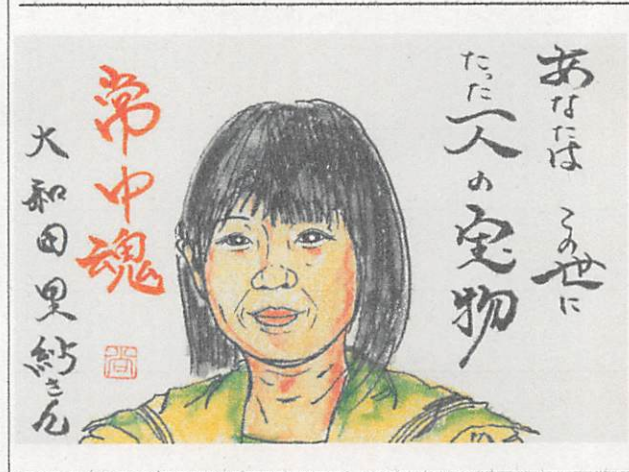 あなたは この世に
たった一人の宝物
常中魂
大和田里紗さん
尚